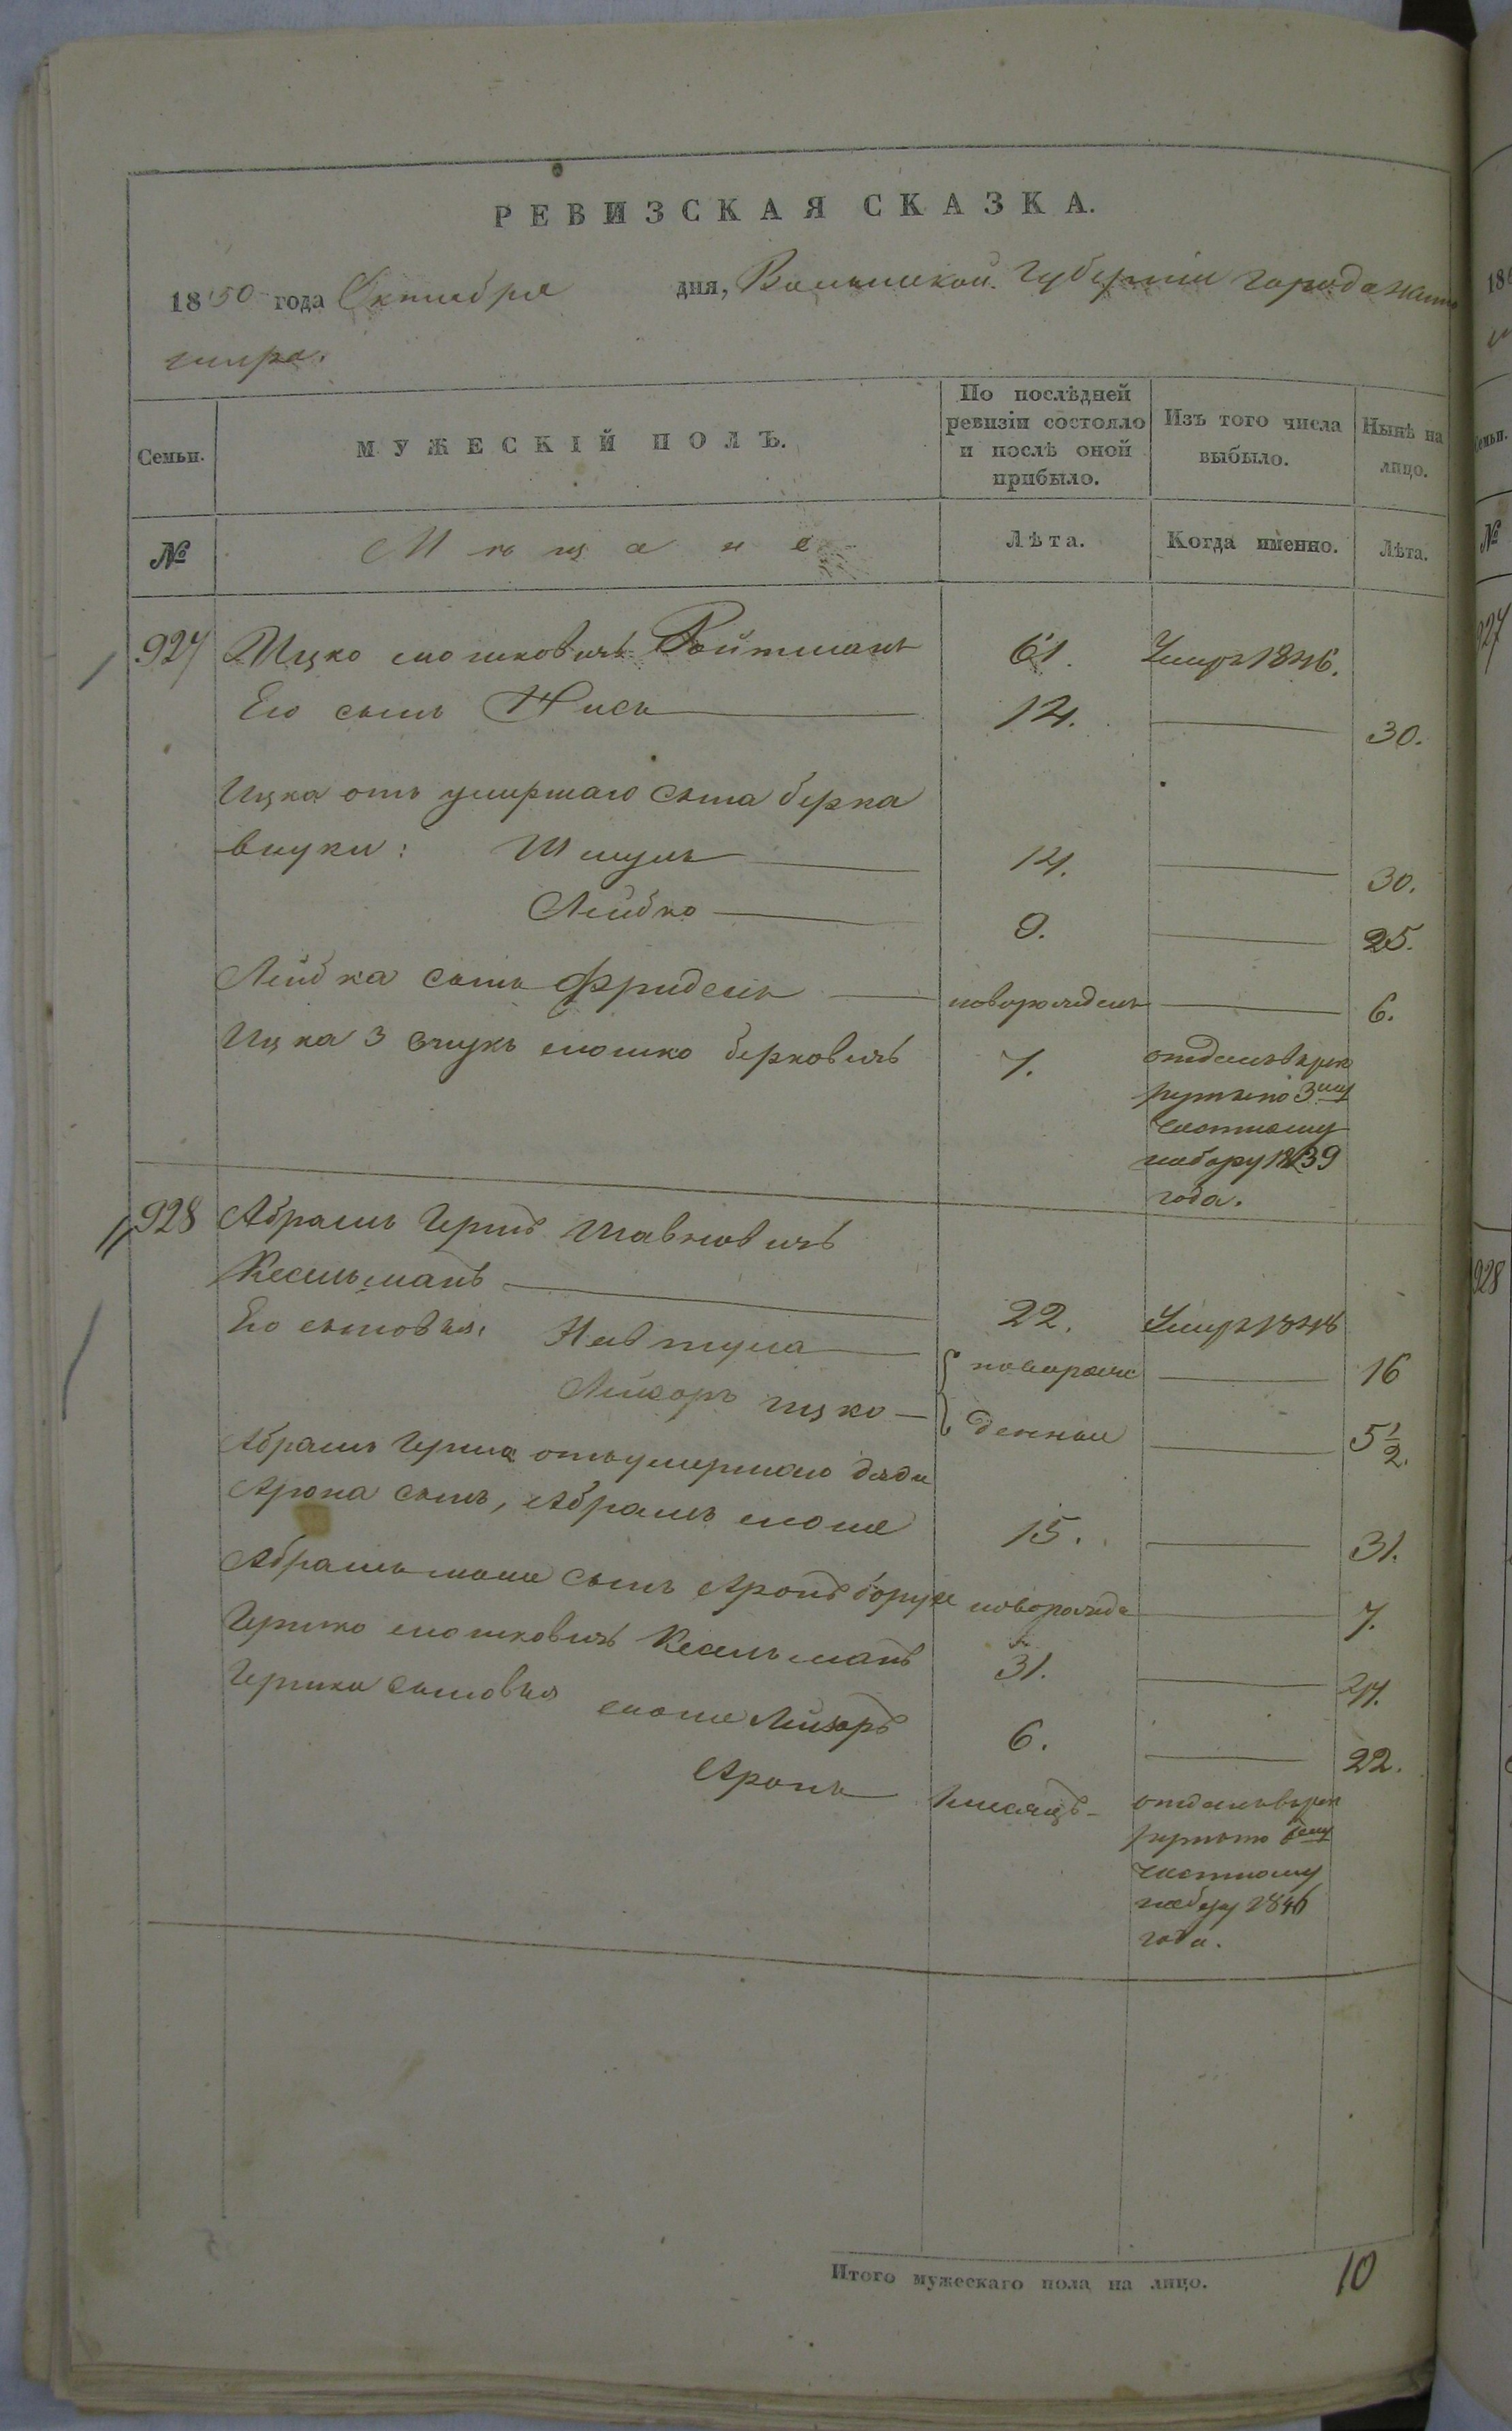 РЕВИЗСКАЯ СКАЗКА.
1850 года Октября дня, Волынской Губерніи города Жито
мира.
Семьи. МУЖЕСКІЙ ПОЛЪ. По послѣдней ревизіи состояло и послѣ оной прибыло. Изъ того числа выбыло. Нынѣ на лицо.
№ Мѣщане Лѣта. Когда именно. Лѣта.
927 Ицко Мошковичъ Ройтманъ 61. Умеръ 1846.
Его сынъ Нись 14. 30.
Ицка отъ умершаго сына Берка
внуки: Шмуль 14. 30.
Лейбко 9. 25.
Лейбка сынъ Фридель новорожденъ 6.
Ицка 3 внукъ Мошко Берковичъ 7. отданъ в рек
руты по 3му
частному
набору 1839
года.
928 Абрамъ Гершъ
Кесельманъ 22. Умеръ
Его сыновья: Нафтула новорож 16
Лейзоръ Ицко денные 5½.
Абрамъ Герша отъ умершаго дяди
Арона сынъ, Абрамъ Моше 15. 31.
Абрамъ Моше сынъ Аронъ Борух новорожде 7.
Гершко Мошковичъ Кесельманъ 31. 47.
Гершки сыновья Моше Лейзоръ 6. 22.
Аронъ 1 месяцъ отданъ в рек
руты по
частному
набору 1846
года.
Итого мужескаго пола на лицо. 10